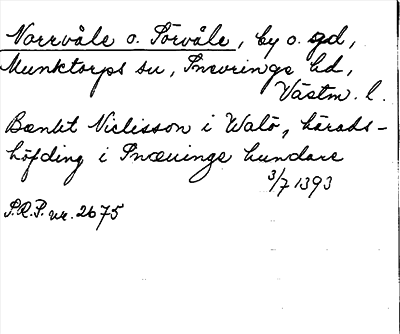 Norrvåle o. Sörvåle, by o. gd,
Munktorps sn, Snevringe hd,
Västm. l.
Bænkt Niclisson i Walö, härads-
höfding i Snæuinge hundare
3/7 1393
S.R.P. nr. 2675